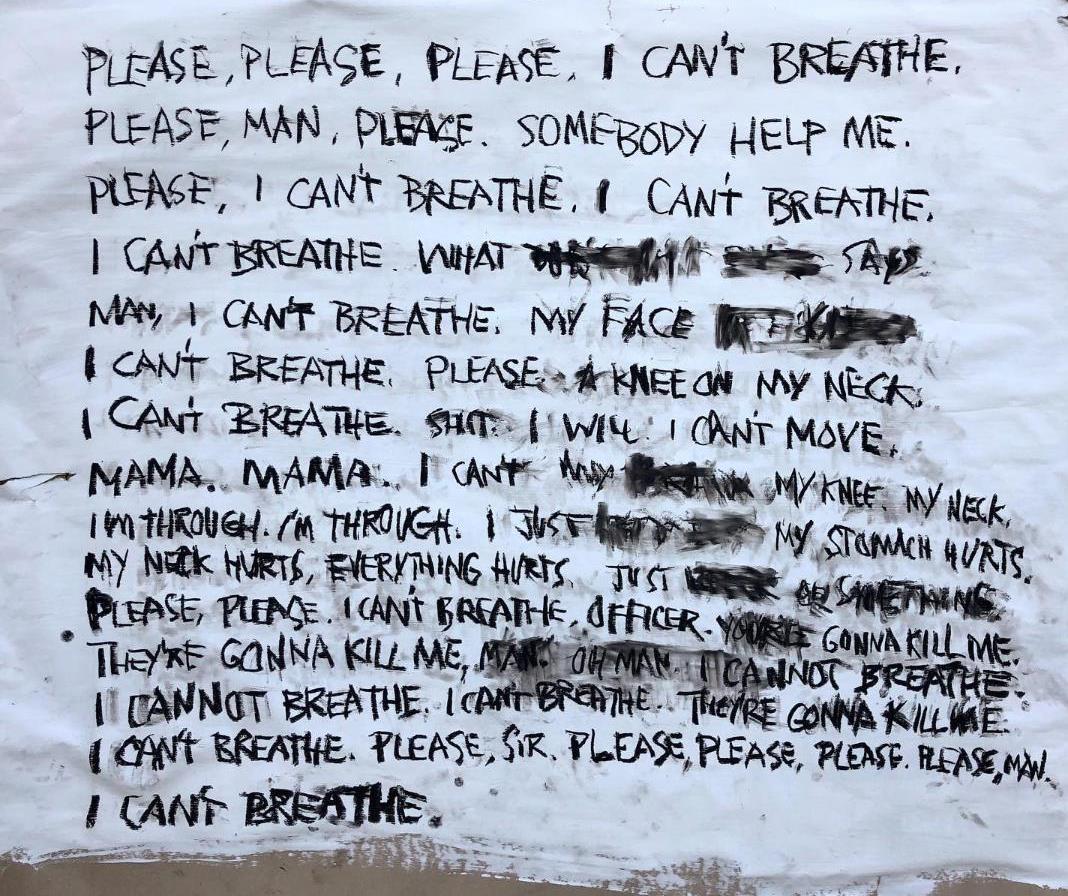 PLEASE, PLEASE, PLEASE. I CAN'T BREATHE.
PLEASE, MAN, PLEASE. SOMEBODY HELP ME.
PLEASE, I CAN'T BREATHE. I CAN'T BREATHE.
I CAN'T BREATHE. WHAT
MAN, I CAN'T BREATHE. MY FACE
I CAN'T BREATHE. PLEASE. A KNEE ON MY NECK.
I CAN'T BREATHE. SHIT. I WILL. I CAN'T MOVE.
MAMA. MAMA. I CAN'T MY KNEE. MY NECK.
I'M THROUGH. I'M THROUGH. I JUST MY STOMACH HURTS.
MY NECK HURTS, EVERYTHING HURTS. JUST OR SOMETHING
PLEASE, PLEASE. I CAN'T BREATHE. OFFICER. YOU'RE GONNA KILL ME.
THEY'RE GONNA KILL ME, MAN. OH MAN. I CANNOT BREATHE.
I CANNOT BREATHE. I CAN'T BREATHE. THEY'RE GONNA KILL ME.
I CAN'T BREATHE. PLEASE, SIR. PLEASE, PLEASE, PLEASE. PLEASE, MAN.
I CAN'T BREATHE.